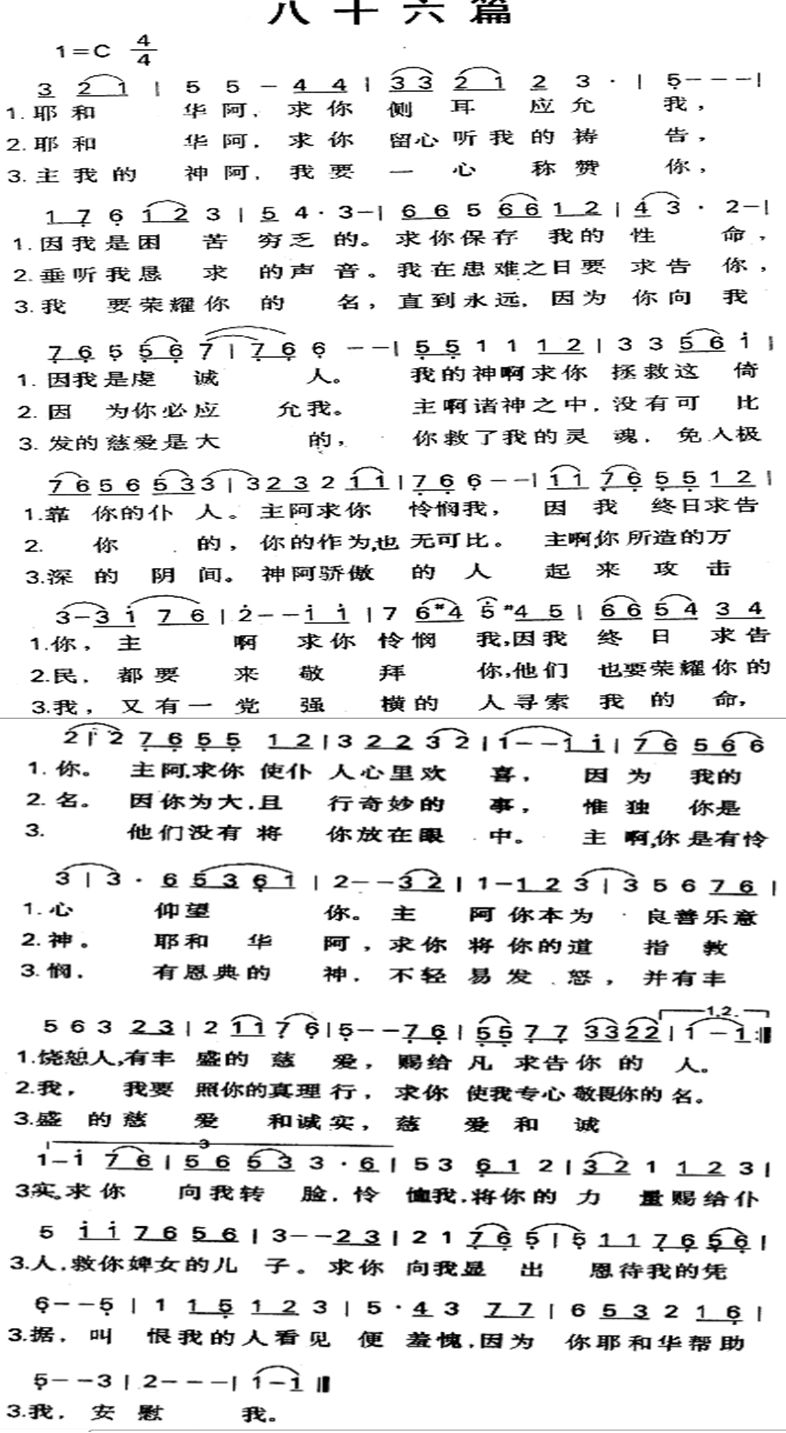 八十六篇
1=C 4/4
3 2 1 | 5 5 - 4 4 | 3 3 2 1 2 3 · | 5 - - - |
1.耶和 华阿，求你 侧 耳 应允 我，
2.耶和 华阿，求你 留心听我的祷 告，
3.主我的 神阿，我要 一 心 称赞 你，
1 7 6 1 2 3 | 5 4 · 3 - | 6 6 5 6 6 1 2 | 4 3 · 2 - |
1.因我是困 苦 穷乏 的。求你保存 我的 性 命，
2.垂听我恳 求 的声音。我在患难之日要 求告 你，
3.我 要荣耀你 的 名，直到永远，因为 你向 我
7 6 5 5 6 7 | 7 6 6 - - | 5 5 1 1 1 2 | 3 3 5 6 i |
1.因我是虔 诚 人。 我的神啊求你 拯救这 倚
2.因 为你必应 允我。 主啊诸神之中，没有可 比
3.发的慈爱是大 的， 你救了我的灵 魂，免人极
7 6 5 6 5 3 3 | 3 2 3 2 1 1 | 7 6 6 - - | 1 1 7 6 5 5 1 2 |
1.靠 你的仆 人。主阿求你 怜悯我， 因 我 终日求告
2. 你 的，你的作为,也 无可比。 主啊,你所造的万
3.深 的 阴 间。神阿骄傲 的 人 起 来 攻 击
3 - 3 i 7 6 | 2 - - i i | 7 6 #4 5 #4 5 | 6 6 5 4 3 4
1.你，主 啊 求你 怜悯 我,因我 终 日 求告
2.民，都要 来 敬 拜 你,他们 也要荣耀你的
3.我，又有一 党 强 横的 人寻索 我 的 命，
2 i 2 7 6 5 5 1 2 | 3 2 2 3 2 | 1 - - 1 i | 7 6 5 6 6
1.你。 主阿,求你 使仆 人心里欢 喜， 因为 我的
2.名。 因你为大,且 行奇妙的 事， 惟独 你是
3. 他们没有将 你放在眼 中。 主 啊,你是有怜
3 | 3 · 6 5 3 6 1 | 2 - - 3 2 | 1 - 1 2 3 | 3 5 6 7 6 |
1.心 仰望 你。主 阿你本为 良善乐意
2.神。 耶和 华 阿，求你 将你的道 指 教
3.悯， 有恩典的 神，不轻 易发 怒，并有丰
5 6 3 2 3 | 2 1 1 7 6 | 5 - - 7 6 | 5 5 7 7 3 3 2 2 | 1.2. 1 - 1 :||
1.饶恕人,有丰 盛的 慈 爱，赐给 凡 求告你 的 人。
2.我， 我要 照你的真理行，求你 使我专心敬畏你的名。
3.盛 的慈 爱 和诚实，慈 爱 和 诚
3
1 - i 7 6 | 5 6 5 3 3 · 6 | 5 3 6 1 2 | 3 2 1 1 2 3 |
3.实。求你 向我转 脸，怜 恤我，将你的 力 量赐给仆
5 i i 7 6 5 6 | 3 - - 2 3 | 2 1 7 6 5 | 5 1 1 7 6 5 6 |
3.人，救你婢女的儿 子。求你 向我显 出 恩待我的凭
6 - - 5 | 1 1 5 1 2 3 | 5 · 4 3 7 7 | 6 5 3 2 1 6 |
3.据，叫 恨我的人看见 便 羞愧，因为 你耶和华帮助
5 - - 3 | 2 - - - | 1 - 1 ||
3.我，安慰 我。